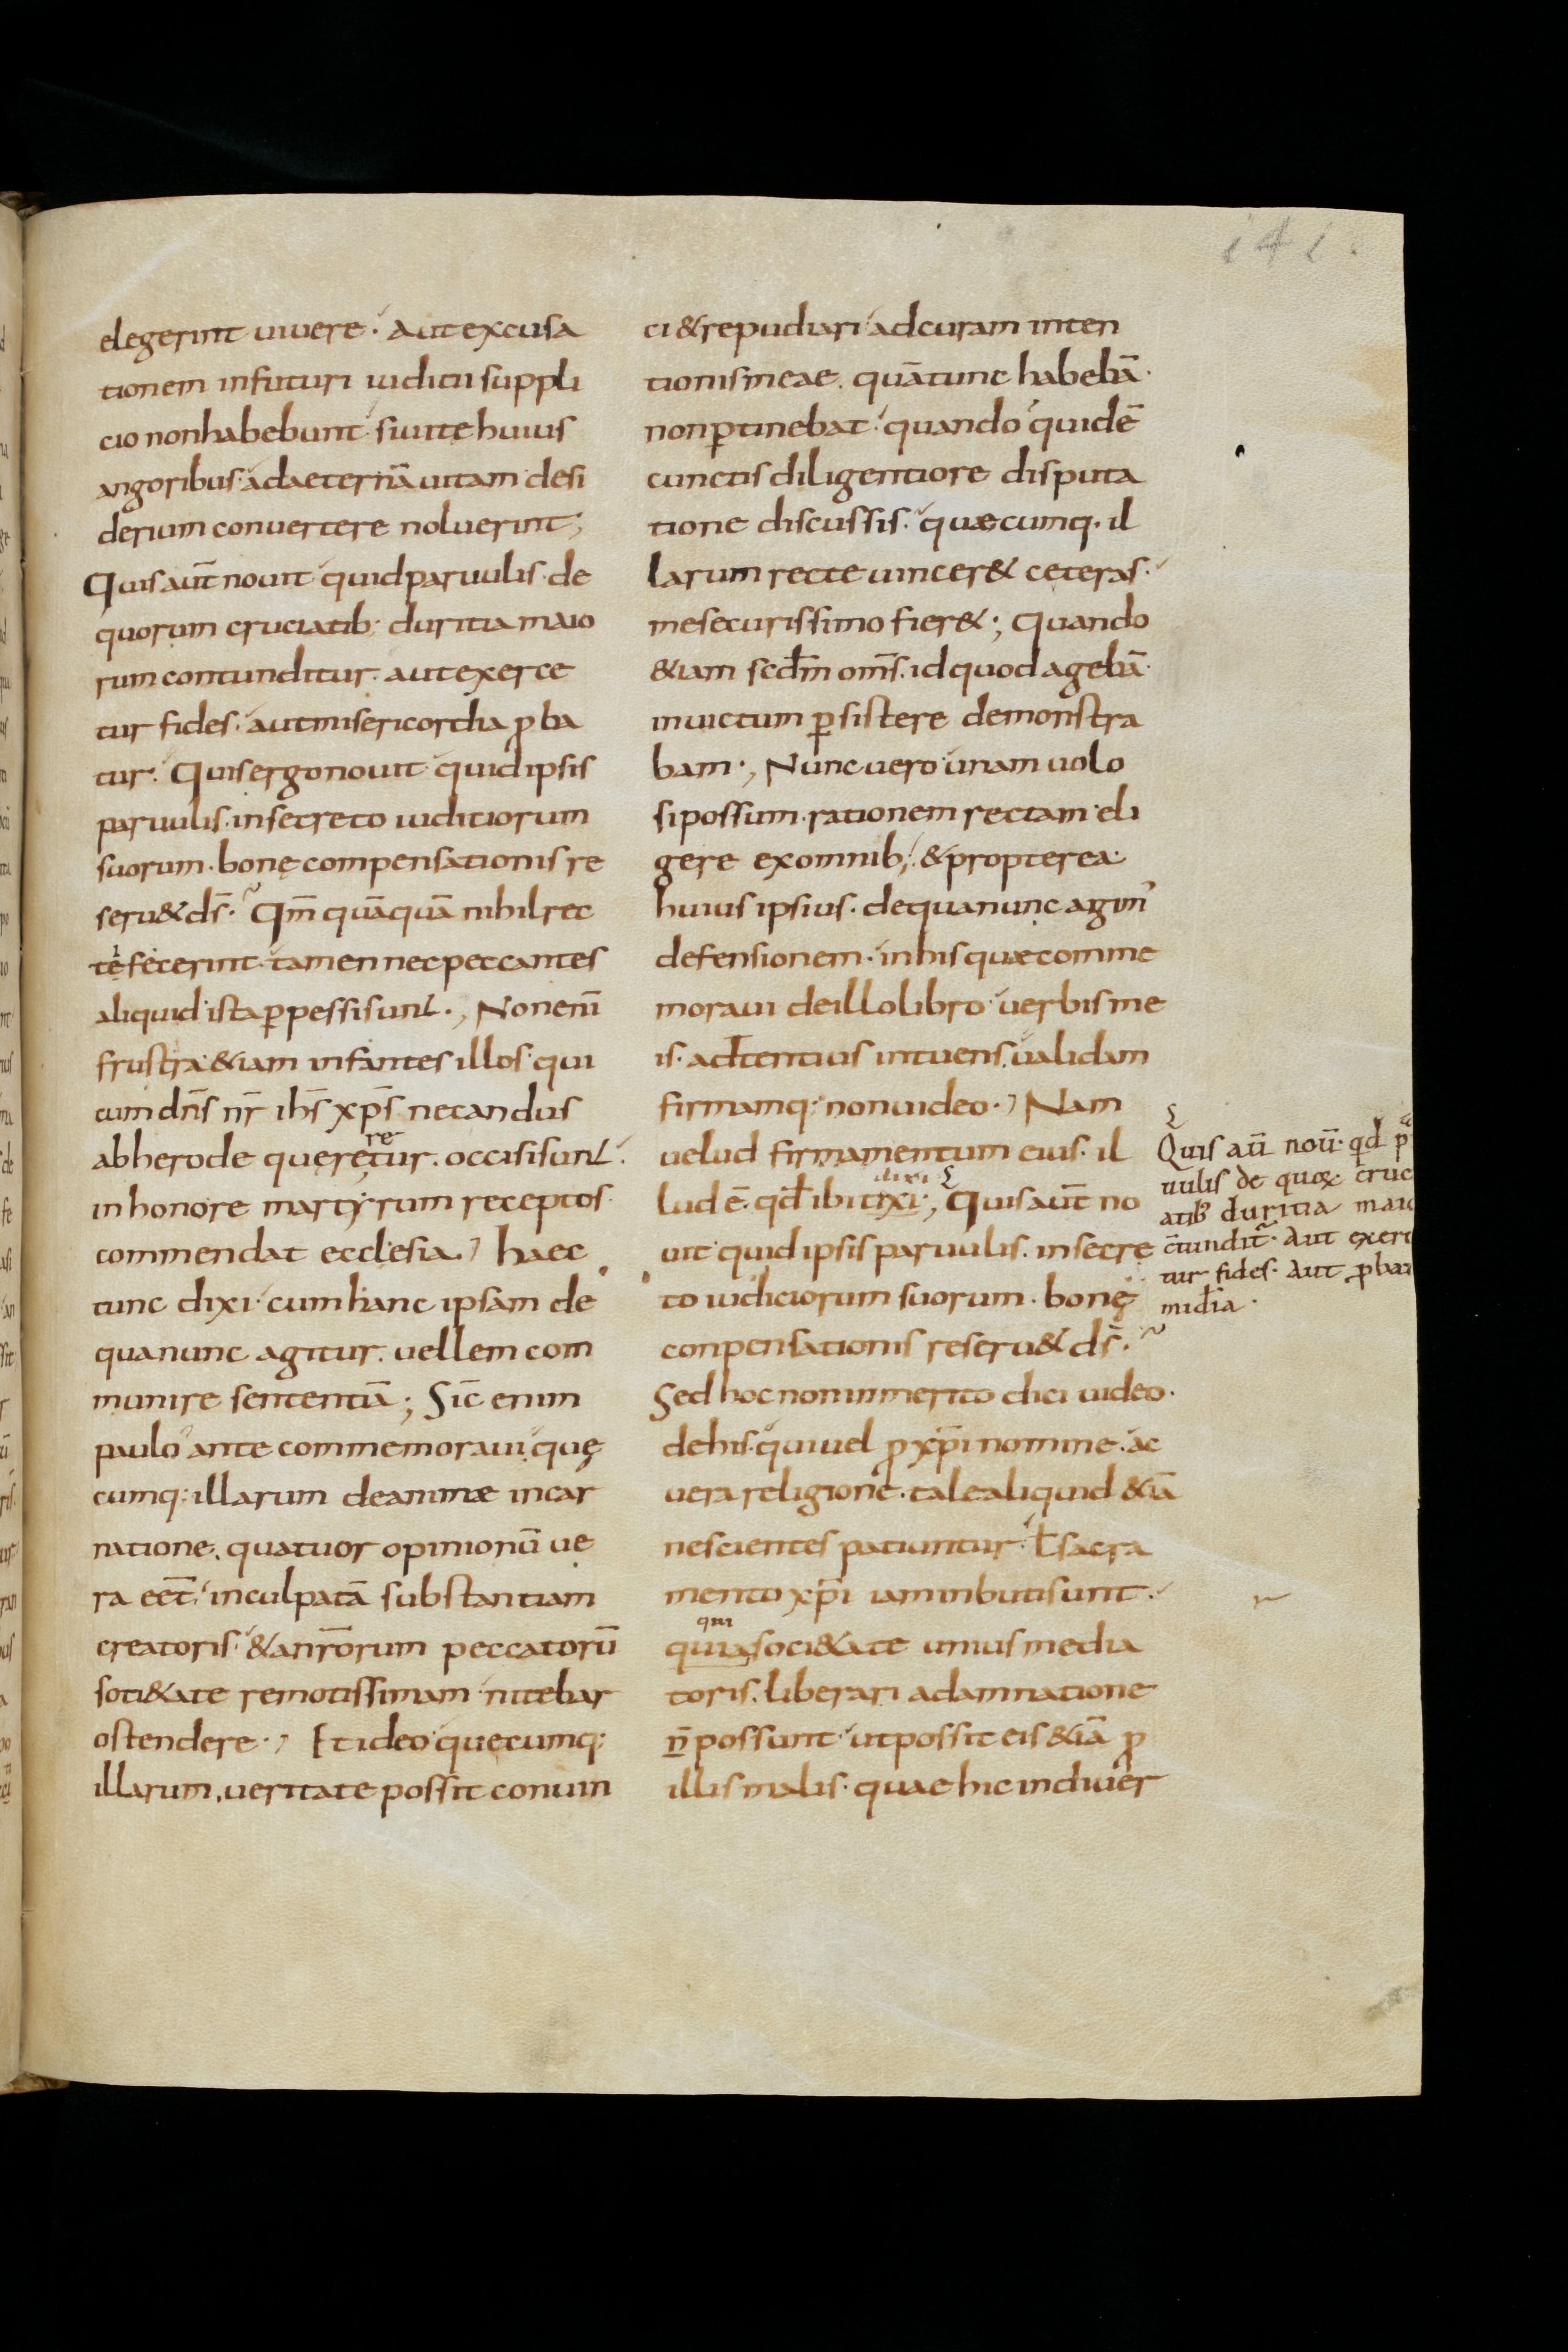 141.
elegerint vivere· aut excusa
tionem in futuri iuditii suppli
cio non habebunt· si vitę huius
angoribus· ad aeternā vitam desi
derium convertere noluerint;
Quis aut̄ novit quid parvulis· de
quorum cruciatib; duritia maio
rum contunditur· aut exerce
tur fides· aut misericordia ꝓba
tur· Quis ergo novit quid ipsis
parvulis· in secreto iuditiorum
suorum· bonę compensationis re
serv& ds̄· Qm̄ quāquā nihil rec
tę fecerint· tamen nec peccantes
aliquid ista ꝑpessi sunt·, Non eni̅
frustra· &iam infantes illos· qui
cum dn̄s nr̄ ihs̄ xp̄s necandus
re
ab herode queretur· occisi sunt·
in honore martyrum receptos·
commendat ecclesia·, haec
tunc dixi· cum hanc ipsam de
qua nunc agitur· vellem com
munire sententiā; Sic̄ enim
paulo ante commemoravi· quę
cumq; illarum de animæ incar
natione· quatuor opinionū ve
ra eēt· inculpatā substantiam
creatoris· & a nr̄orum peccatorū
soti&ate remotissimam· nitebar
ostendere·, Et ideo· quecumq;
illarum· veritate possit convin
ci & repudiari· ad curam inten
tionis meae· quā tunc habebā·
non ꝑtinebat· quando quidē
cunctis diligentiore disputa
tione discussis· quæcumq· il
larum recte vincer& ceteras·
me securissimo fier&; Quando
&iam scdm̄ oms̄· id quod agebā·
invictum ꝑsistere demonstra
bam·, Nunc vero unam volo
si possum· rationem rectam eli
gere ex omnib;· & propterea·
huius ipsius· de qua nunc agim̓
defensionem· in his quæ comme
moravi de illo libro· verbis me
is· adtentius intuens· validam
firmamq; non video·, Nam
velud firmamentum eius· il
dixi
lud ē· qd̄ ibi tixi·; Quis aut̄ no
vit· quid ipsis parvulis· in secre
to iudiciorum suorum· bonę
conpensationis reserv& ds̄·
Sed hoc non inmerito dici video·
de his· qui vel ꝓ xp̄i nomine· ac
vera religione· tale aliquid &iā
nescientes patiuntur· ł sacra
mento xp̄i iam inbuti sunt·
qui
quia soci&ate unius media
toris· liberari a damnatione
n̄ possunt· ut possit eis &iā ꝓ
illis malis· quae hic in diver
Quis aū noū· qd p̄
vulis de quoꝝ cruc
atib; duritia maio
c̄tundit̄· Aut exerc
tur fides· Aut ꝓbat
mid̄ia·